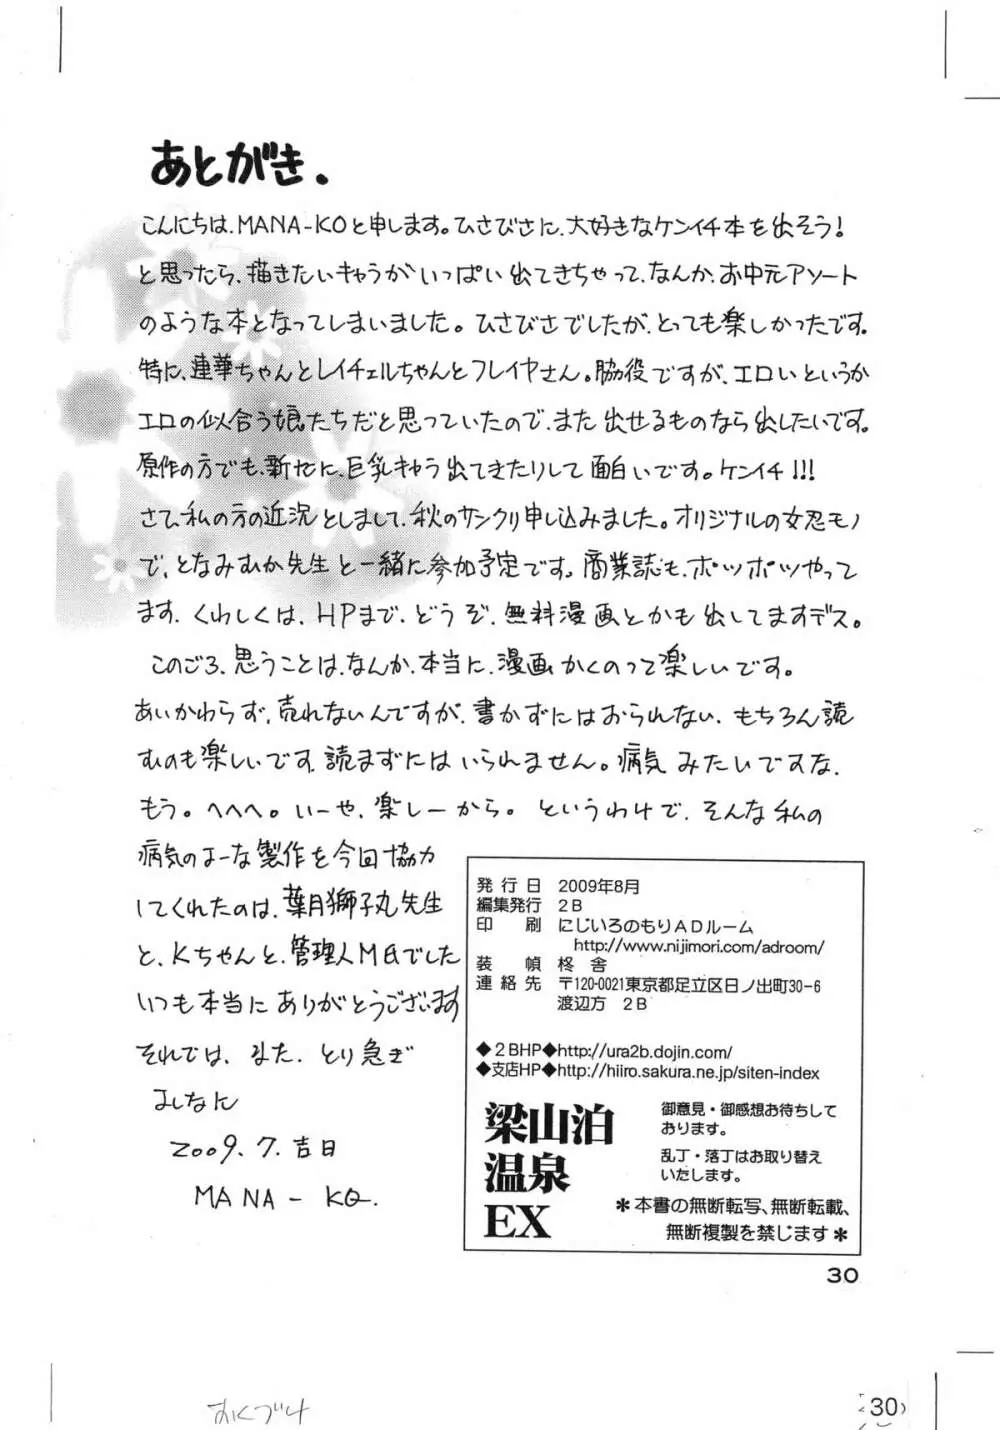 あとがき.
こんにちは、MANA-KOと申します。ひさびさに、大好きなケンイチ本を出そう!
と思ったら、描きたいキャラがいっぱい出てきちゃって、なんか、お中元アソート
のような本となってしまいました。ひさびさでしたが、とっても楽しかったです。
特に、連華ちゃんとレイチェルちゃんとフレイヤさん。脇役ですが、エロいというか
エロの似合う娘たちだと思っていたので、また出せるものなら出したいです。
原作の方でも、新たに、巨乳キャラ出てきたりして面白いです。ケンイチ!!!
さて、私の方の近況としまして、秋のサンクリ申し込みました。オリジナルの女忍モノ
で、となみむか先生と一緒に参加予定です。商業誌も、ポツポツやって
ます、くわしくは、HPまで、どうぞ、無料漫画とかも出してますデス。
このごろ、思うことは、なんか、本当に、漫画かくのって楽しいです。
あいかわらず、売れないんですが、書かずにはおられない、もちろん読
むのも楽しいです。読まずにはいられません。病気みたいですな、
もう。へへへ。いーや、楽しーから。というわけで、そんな私の
病気のよーな製作を今回協力
してくれたのは、葉月獅子丸先生
と、Kちゃんと、管理人M氏でした
いつも本当にありがとうございます
それでは、また、とり急ぎ
よしなに
2009.7.吉日
MANA-KO.
発行日 2009年8月
編集発行 2B
印刷 にじいろのもりADルーム
http://www.nijimori.com/adroom/
装幀 柊舎
連絡先 〒120-0021東京都足立区日ノ出町30-6
渡辺方 2B
◆2BHP◆http://ura2b.dojin.com/
◆支店HP◆http://hiiro.sakura.ne.jp/siten-index
梁山泊
温泉
EX
御意見・御感想お待ちして
おります。
乱丁・落丁はお取り替え
いたします。
＊本書の無断転写、無断転載、
無断複製を禁じます＊
30
おくづけ
30